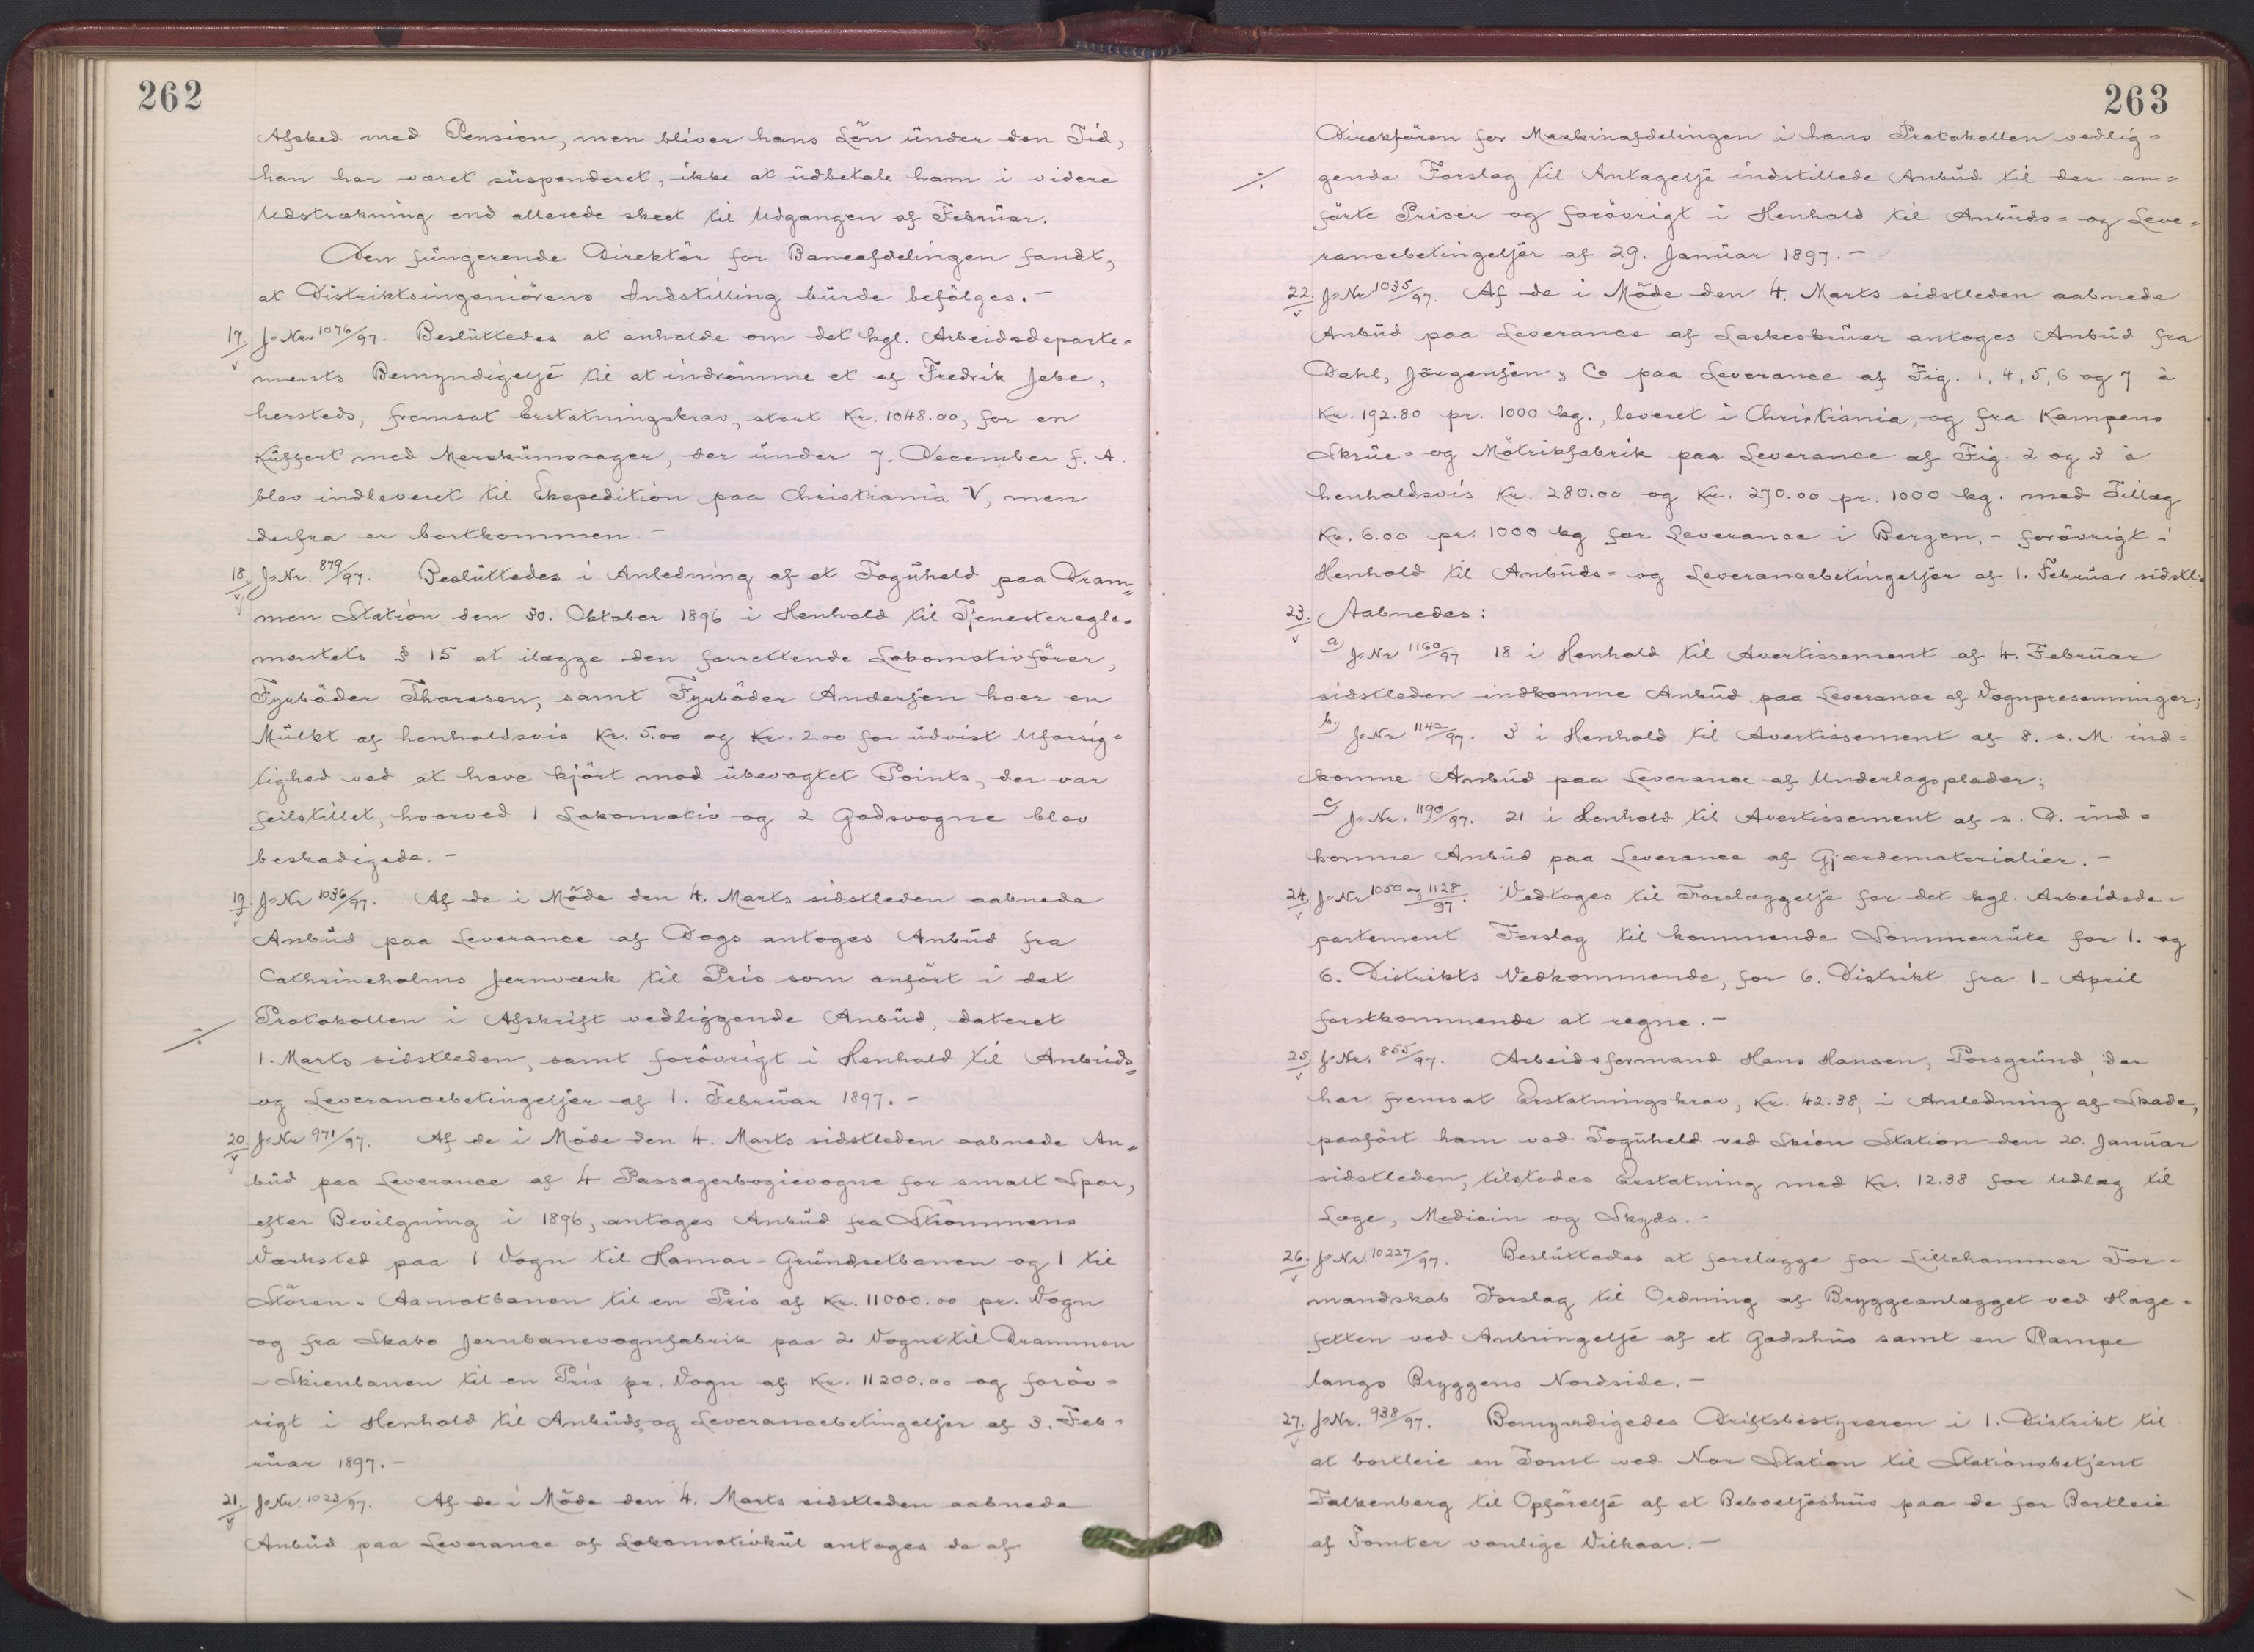 262
Afsked med Pension, men bliver hans Lön under den Tid,
han har været suspenderet, ikke at udbetale ham i videre
Udstrækning end allerede skeet til Udgangen af Februar.
Den fungerende Direktör for Baneafdelingen fandt,
at Distriktsingeniörens Indstilling burde befölges. -
17. J-Nr 1076/97. Besluttedes at anholde om det kgl. Arbeidsdeparte=
ments Bemyndigelse til at indrömme et af Fredrik Jebe,
hersteds, fremsat Erstatningskrav, stort Kr. 1048.00, for en
Kuffert med Merskumssager, der under 7. December f. A.
blev indleveret til Ekspedition paa Christiania V, men
derfra er bortkommen. -
18. J-Nr. 879/97. Besluttedes i Anledning af et Toguheld paa Dram=
men Station den 30. Oktober 1896 i Henhold til Tjenestereгle=
mentets § 15 at ilægge den forrettende Lokomotivförer,
Fyrböder Thoresen, samt Fyrböder Andersen hver en
Mulkt af henholdsvis Kr. 5.00 og Kr. 2.00 for udvist Uforsig=
tighed ved at have kjört mod ubevogtet Points, der var
feilstillet, hvorved 1 Lokomotiv og 2 Godsvogne blev
beskadigede. -
19. J-Nr 1036/97. Af de i Möde den 4. Marts sidstleden aabnede
Anbud paa Leverance af Dogs antoges Anbud fra
Cathrineholms Jernværk til Pris som anfört i det
Protokollen i Afskrift vedliggende Anbud, dateret
1. Marts sidstleden, samt forövrigt i Henhold til Anbuds=
og Leverancebetingelser af 1. Februar 1897. -
20. J-Nr 971/97. Af de i Möde den 4. Marts sidstleden aabnede An=
bud paa Leverance af 4 Passagerbogievogne for smalt Spor,
efter Bevilgning i 1896, antoges Anbud fra Strömmens
Værksted paa 1 Vogn til Hamar-Grundsetbanen og 1 til
Stören-Aamotbanen til en Pris af Kr. 11000.00 pr. Vogn
og fra Skabo Jernbanevognfabrik paa 2 Vogne til Drammen
- Skienbanen til en Pris pr. Vogn af Kr. 11200.00 og foröv=
rigt i Henhold til Anbuds= og Leverancebetingelser af 3. Feb=
ruar 1897. -
21. J-Nr. 1023/97. Af de i Möde den 4. Marts sidstleden aabnede
Anbud paa Leverance af Lokomotivkul antoges de af
263
Direktören for Maskinafdelingen i hans Protokollen vedlig=
gende Forslag til Antagelse indstillede Anbud til der an=
förte Priser og forövrigt i Henhold til Anbuds= og Leve=
rancebetingelser af 29. Januar 1897. -
22. J-Nr 1035/97. Af de i Möde den 4. Marts sidstleden aabnede
Anbud paa Leverance af Laskeskruer antoges Anbud fra
Dahl, Jörgensen & Co paa Leverance af Fig. 1, 4, 5, 6 og 7 à
Kr. 192.80 pr. 1000 kg., leveret i Christiania, og fra Kampens
Skrue= og Mötrikfabrik paa Leverance af Fig. 2 og 3 à
henholdsvis Kr. 280.00 og Kr. 270.00 pr. 1000 kg. med Tillæg
Kr. 6.00 pr. 1000 kg for Leverance i Bergen, - forövrigt i
Henhold til Anbuds= og Leverancebetingelser af 1. Februar sidstl.
23. Aabnedes:
a) J-Nr 1160/97 18 i Henhold til Avertissement af 4. Februar
sidstleden indkomne Anbud paa Leverance af Vognpresenninger;
b) J-Nr 1142/97. 3 i Henhold til Avertissement af 8. s. M. ind=
komne Anbud paa Leverance af Underlagsplader;
c) J-Nr. 1190/97. 21 i Henhold til Avertissement af s. D. ind=
komne Anbud paa Leverance af Gjærdematerialier. -
24. J-Nr 1050 og 1128/97. Vedtoges til Forelæggelse for det kgl. Arbeidsde=
partement Forslag til kommende Sommerrute for 1. og
6. Distrikts Vedkommende, for 6. Distrikt fra 1. April
förstkommende at regne. -
25. J-Nr. 855/97. Arbeidsformand Hans Hansen, Porsgrund, der
har fremsat Erstatningskrav, Kr. 42.38, i Anledning af Skade,
paafört ham ved Toguheld ved Skien Station den 20. Januar
sidstleden, tilstodes Erstatning med Kr. 12.38 for Udlæg til
Læge, Medicin og Skyds. -
26. J-Nr. 10227/97. Besluttedes at forelægge for Lillehammer For=
mandskab Forslag til Ordning af Bryggeanlægget ved Hage=
fetten ved Anbringelse af et Godshus samt en Rampe
langs Bryggens Nordside. -
27. J-Nr. 938/97. Bemyndigedes Driftsbestyreren i 1. Distrikt til
at bortleie en Tomt ved Nor Station til Stationsbetjent
Falkenberg til Opförelse af et Beboelseshus paa de for Bortleie
af Tomter vanlige Vilkaar. -